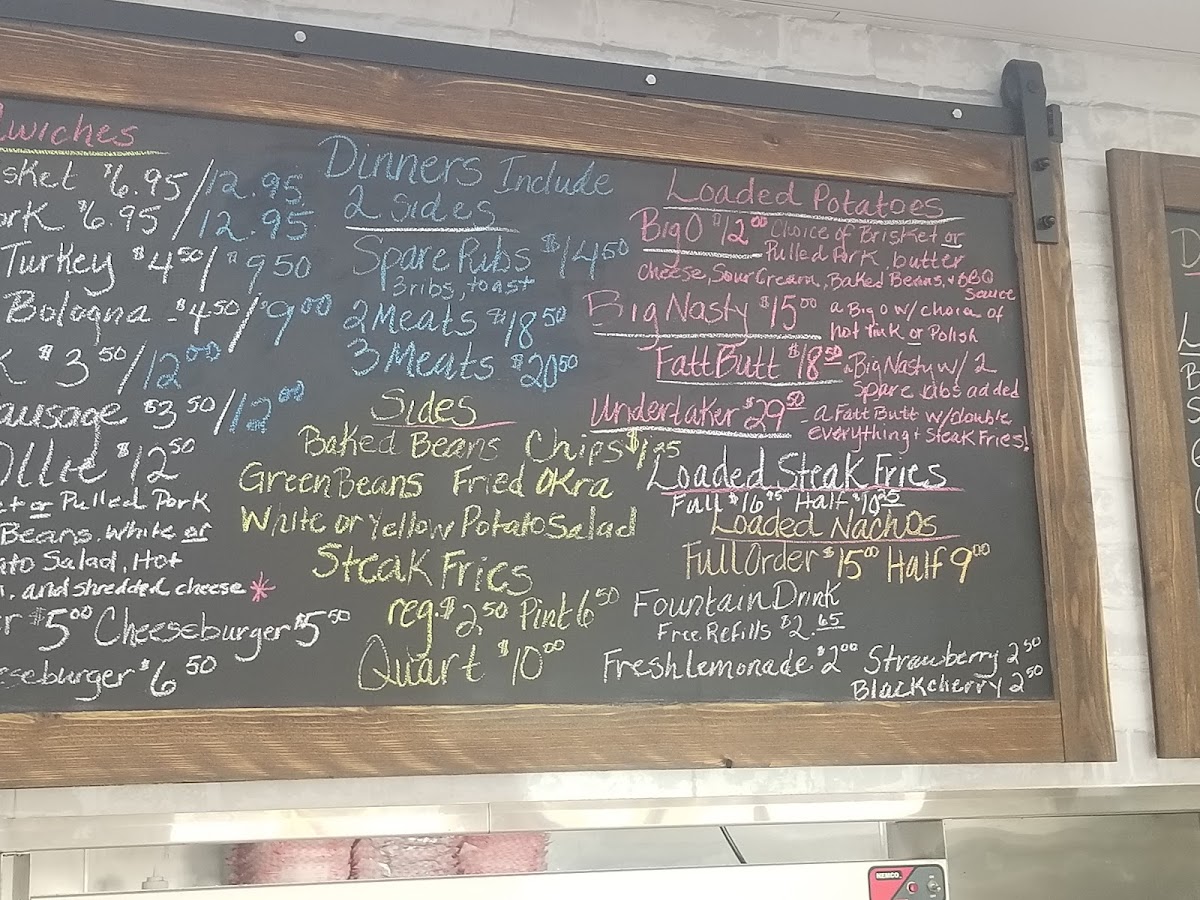 wiches
sket $6.95/12.95
ork $6.95/12.95
Turkey $4 50/$9 50
Bologna - $4 50/9 00
K $3 50/12 00
ausage $3 50/12 00
Ollie $12 50
et or Pulled Pork
Beans, White or
ato Salad, Hot
, and shredded cheese *
er $5 00 Cheeseburger $5 50
eseburger $6 50
Dinners Include
2 sides
Spare Ribs $14 50
3 ribs, toast
2 Meats $18 50
3 Meats $20 50
Sides
Baked Beans Chips $1.25
Green Beans Fried Okra
White or Yellow Potato Salad
Steak Fries
reg. $2 50 Pint 6 50
Quart $10 00
Loaded Potatoes
Big O $12 00 Choice of Brisket or
Pulled Pork butter
cheese, Sour Cream, Baked Beans, + BBQ
Sauce
Big Nasty $15 00 a Big O w/ choice of
Hot Link or Polish
Fatt Butt $18 50 a Big Nasty w/ 2
Spare ribs added
Undertaker $29 50 - a Fatt Butt w/double
everything + Steak Fries!
Loaded Steak Fries
Full $16 95 Half $10 25
Loaded Nachos
Full Order $15 00 Half 9 00
Fountain Drink
Free Refills $2.65
Fresh Lemonade $2 00 Strawberry 2 50
Blackcherry 2 50
D
L
B
NEMCO